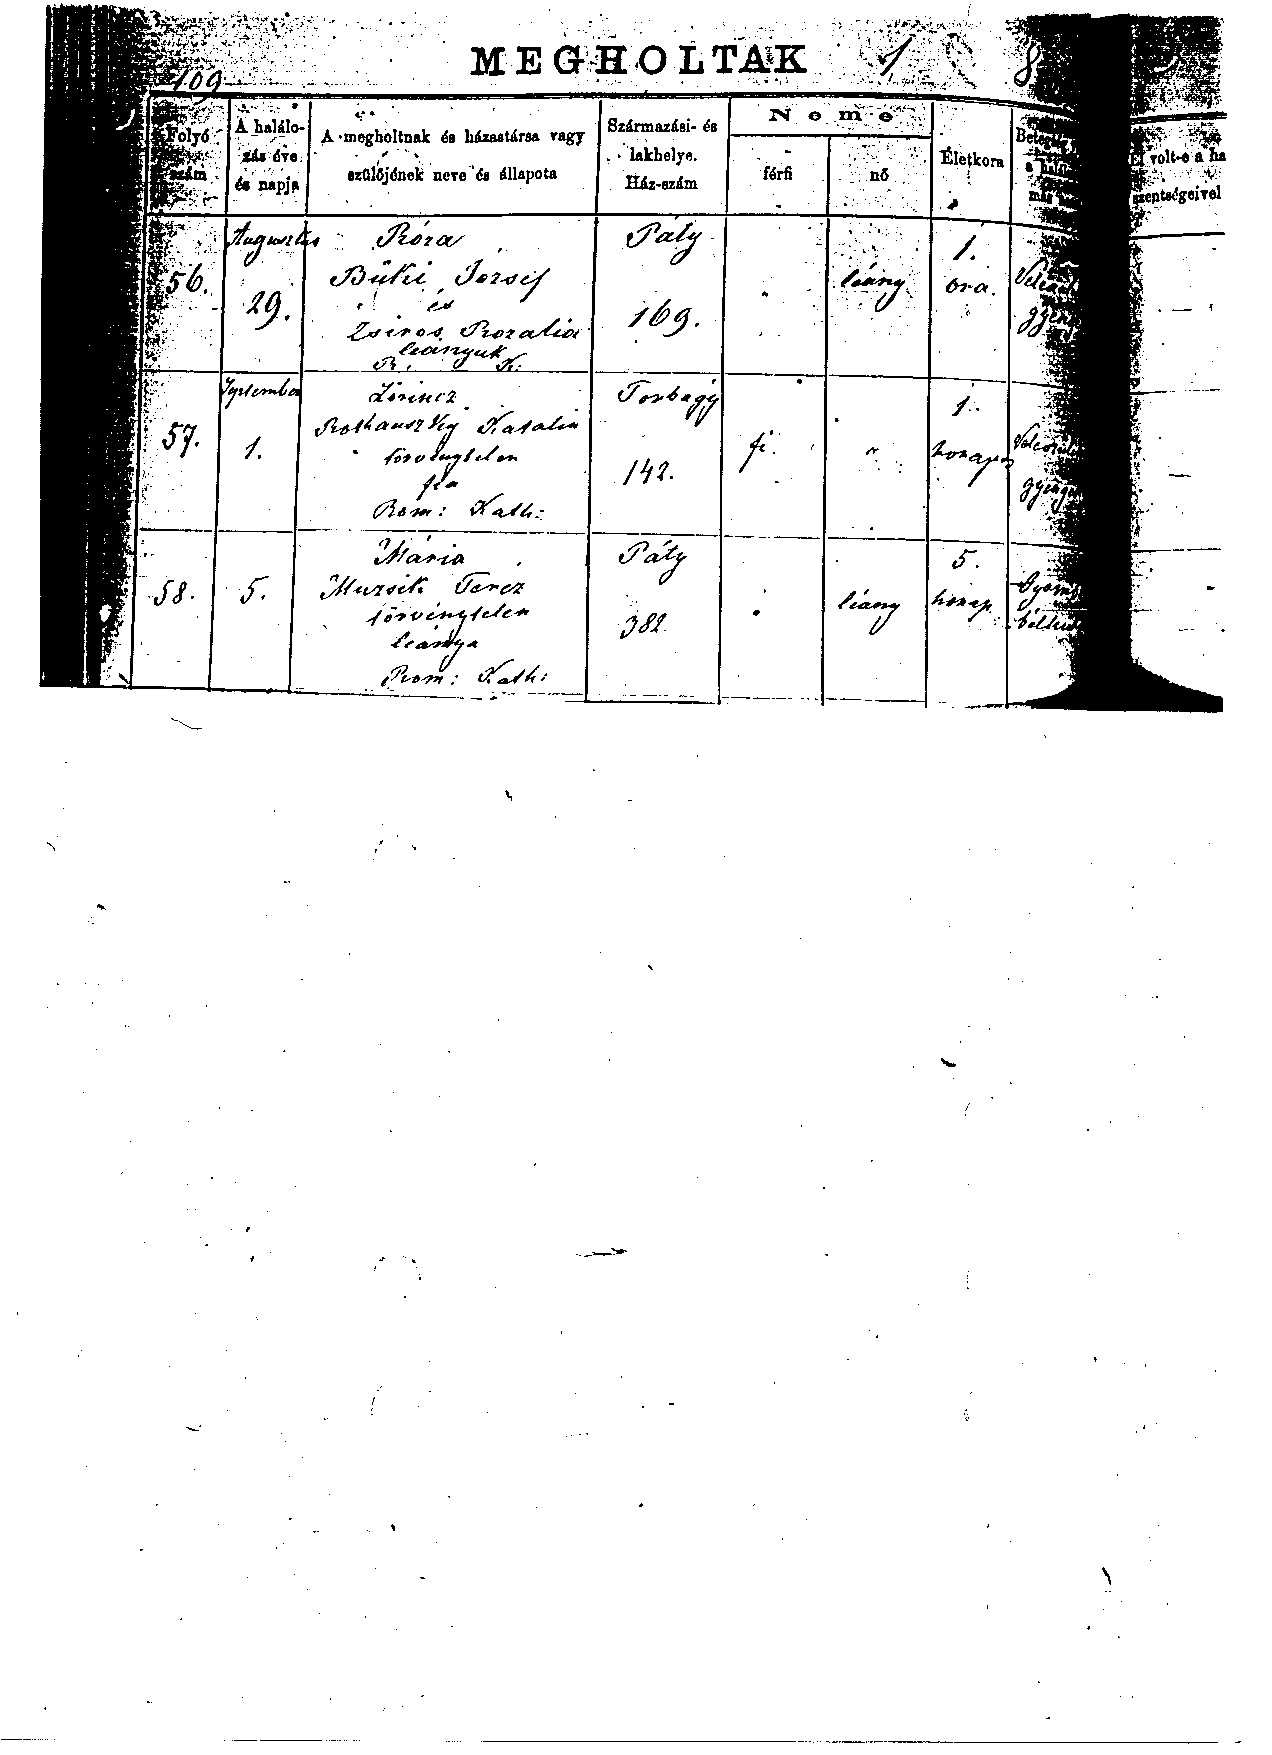 109
MEGHOLTAK 1 8
Folyó szám
A halálozás éve és napja
A megholtnak és házastársa vagy szülőjének neve és állapota
Származási- és lakhelye. Ház-szám
Neme
férfi
nő
Életkora
volt-e a ha
szentségeivel
56.
Augusztus
29.
Róza
Büki József
és
Zsiros Rozalia
leányuk
R. K.
Páty
169.
leány
1.
óra.
57.
September
1.
Lőrincz
Katalin
törvénytelen
fia
Rom: Kath:
Torbágy
142.
fi.
"
1.
honapos
58.
5.
Mária
Muzsik Terez
törvénytelen
leánya
Rom: Kath:
Páty
382.
leány
5.
honap.